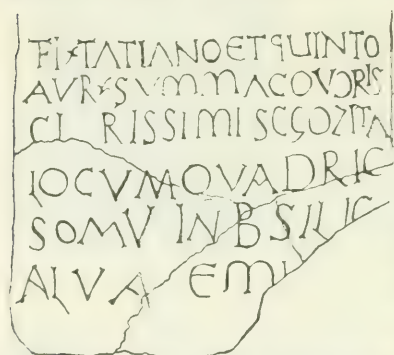 FI TATIANO ET QUINTO
AVR SVMMACO VORIS
CL RISSIMIS
IOCVM QVADRIC
SOMV IN BSILIC
ALVA EMI